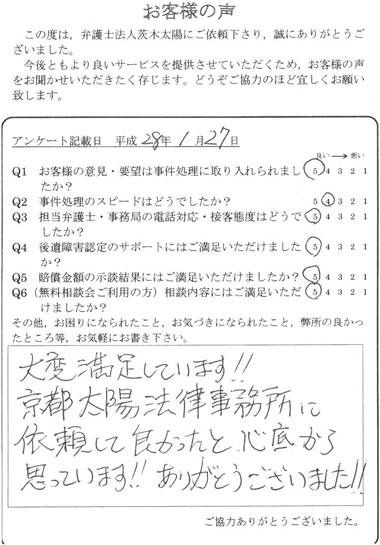 お客様の声
この度は，弁護士法人茨木太陽にご依頼下さり，誠にありがとうご
ざいました。
今後ともより良いサービスを提供させていただくため，お客様の声
をお聞かせいただきたく存じます。どうぞご協力のほど宜しくお願い
致します。
アンケート記載日　平成 28年 1月 27日
良い → 悪い
Q1　お客様の意見・要望は事件処理に取り入れられまし　5 4 3 2 1
たか？
Q2　事件処理のスピードはどうでしたか？　5 4 3 2 1
Q3　担当弁護士・事務局の電話対応・接客態度はどうで　5 4 3 2 1
したか？
Q4　後遺障害認定のサポートにはご満足いただけました　5 4 3 2 1
か？
Q5　賠償金額の示談結果にはご満足いただけましたか？　5 4 3 2 1
Q6（無料相談会ご利用の方）相談内容にはご満足いただ　5 4 3 2 1
けましたか？
その他，お困りになられたこと，お気づきになられたこと，弊所の良かっ
たところ等，お気軽にお書き下さい。
大変満足しています!!
京都太陽法律事務所に
依頼して良かったと、心底から
思っています!! ありがとうございました!!
ご協力ありがとうございました。